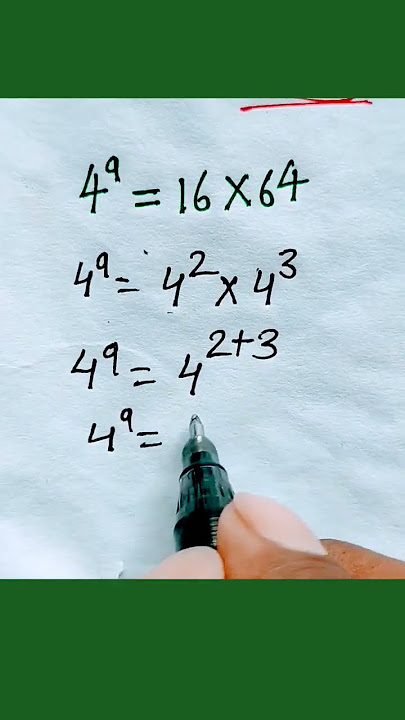 4ᵃ = 16 × 64
4ᵃ = 4² × 4³
4ᵃ = 4²⁺³
4ᵃ =